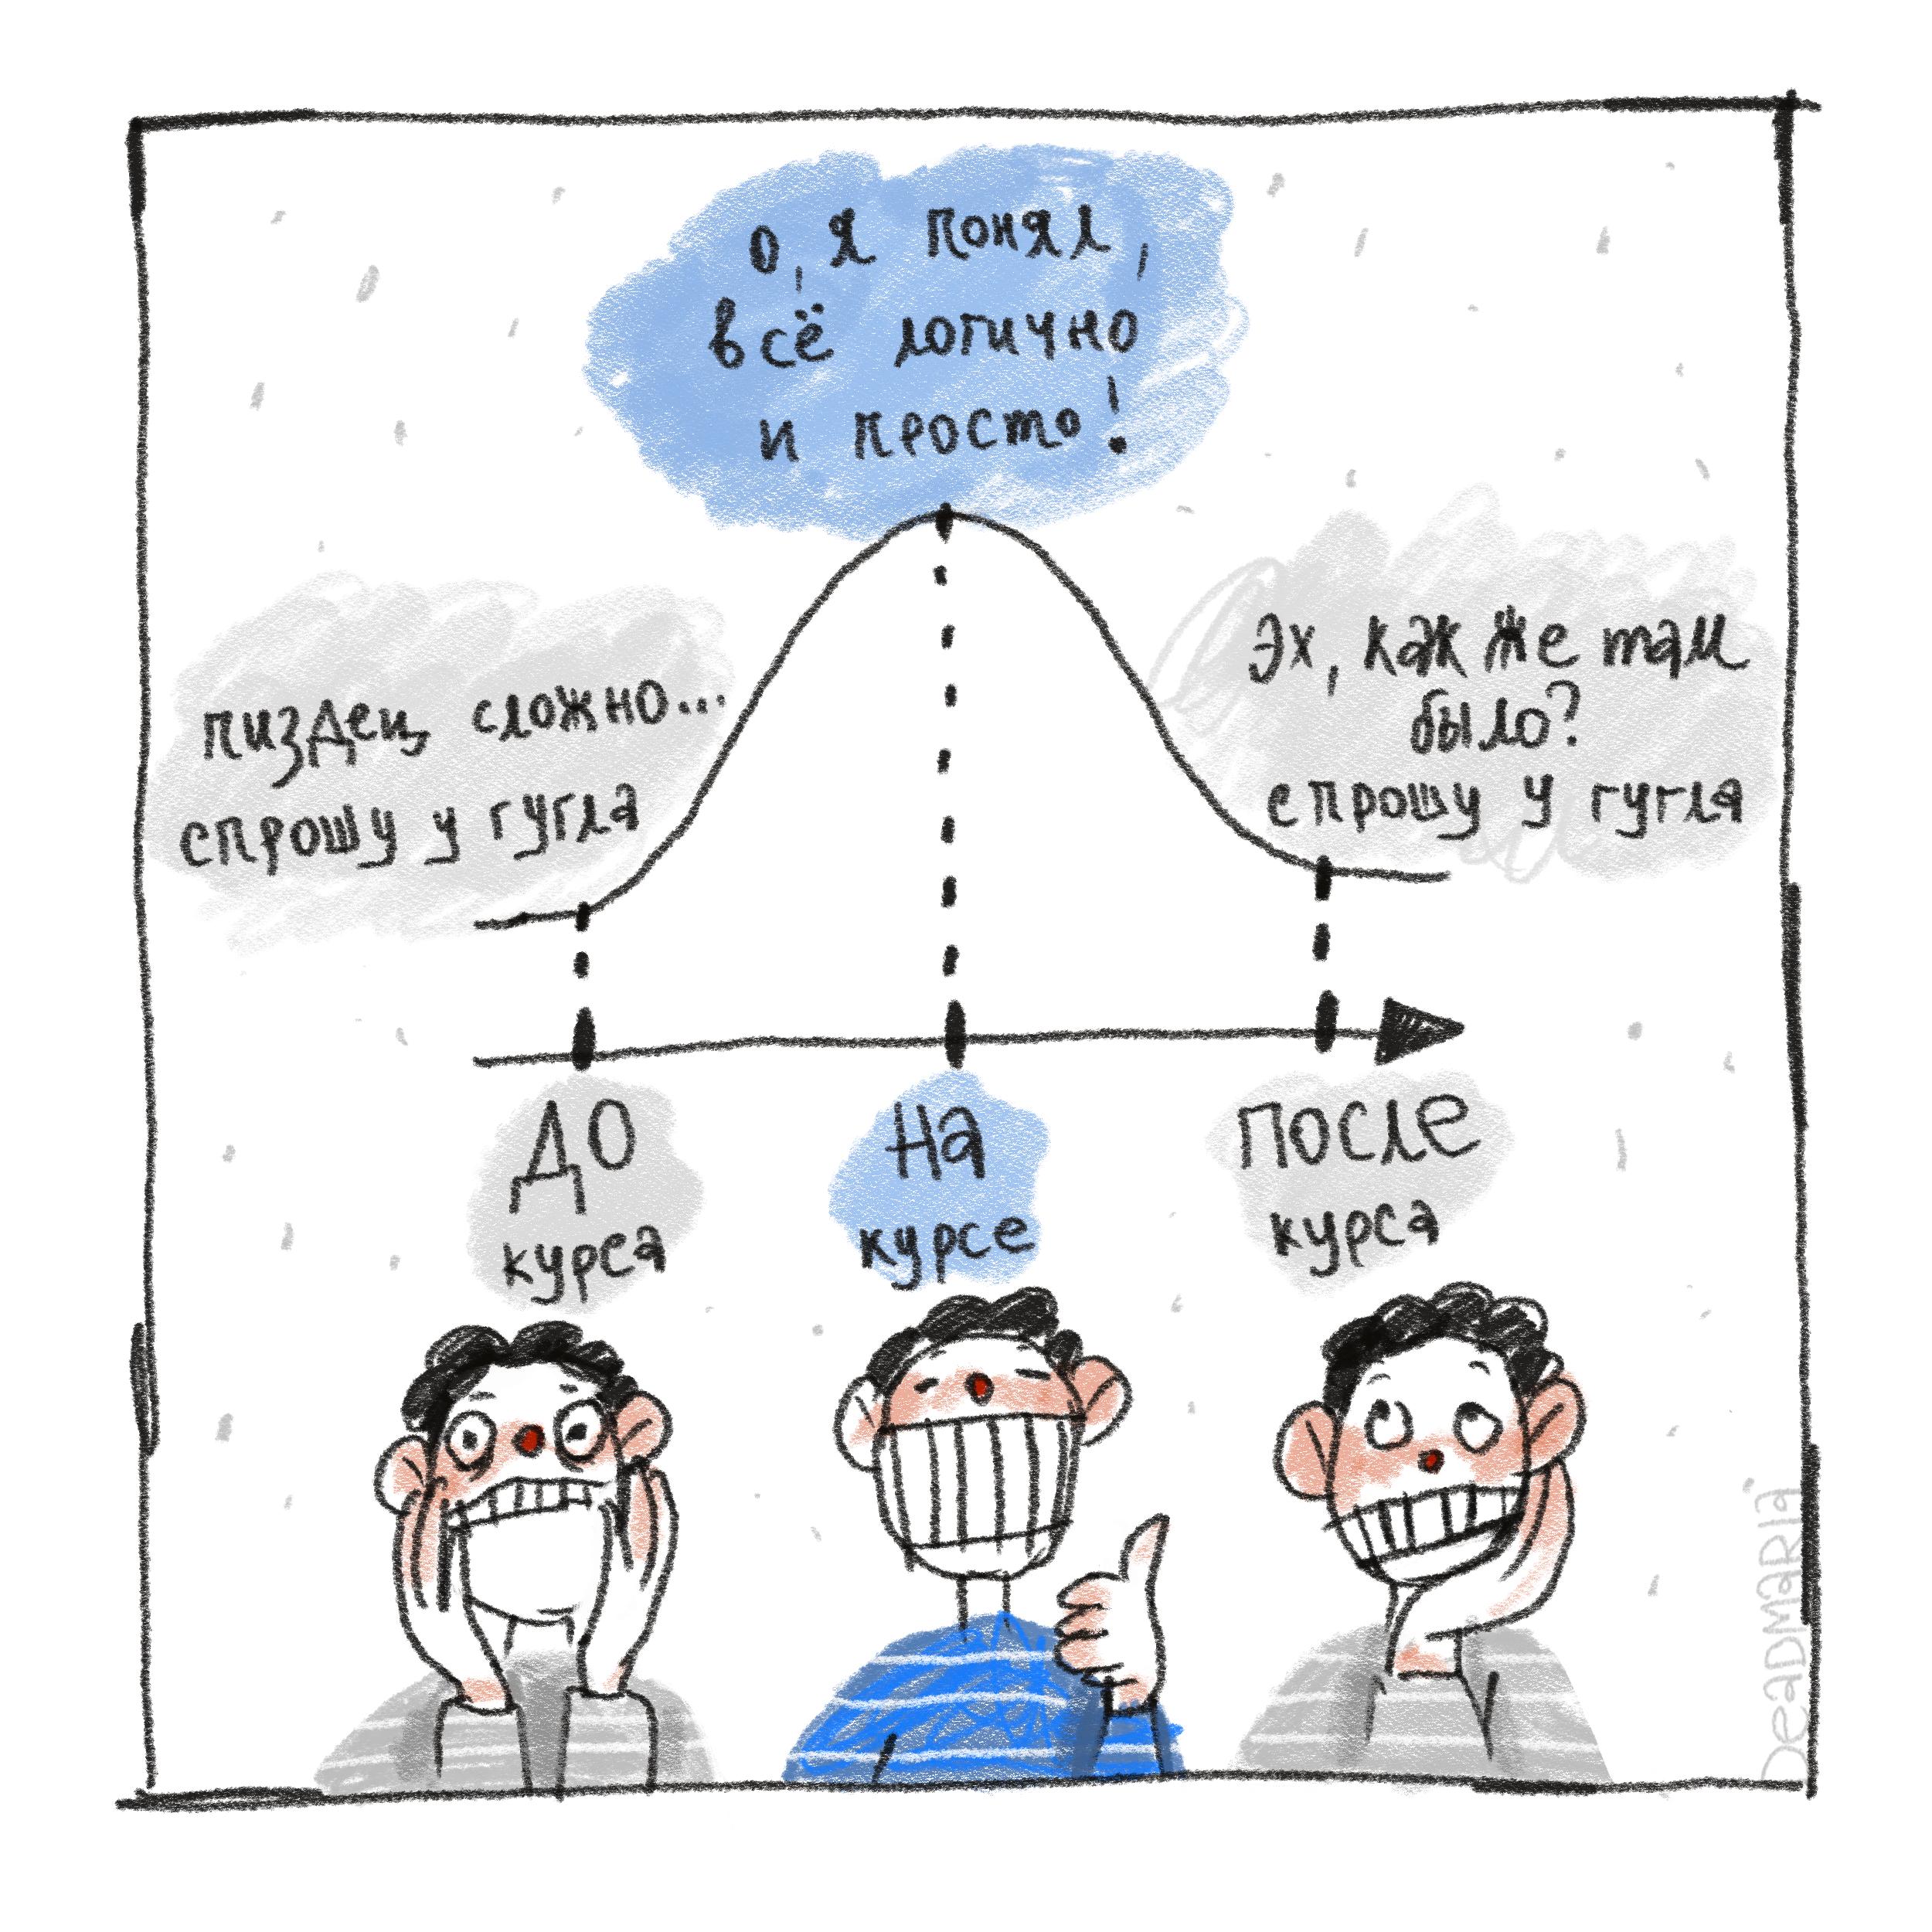 О, я понял,
всё логично
и просто!
пиздец сложно...
спрошу у гугла
Эх, как же там
было?
спрошу у гугла
ДО
курса
На
курсе
После
курса
DeadMaria